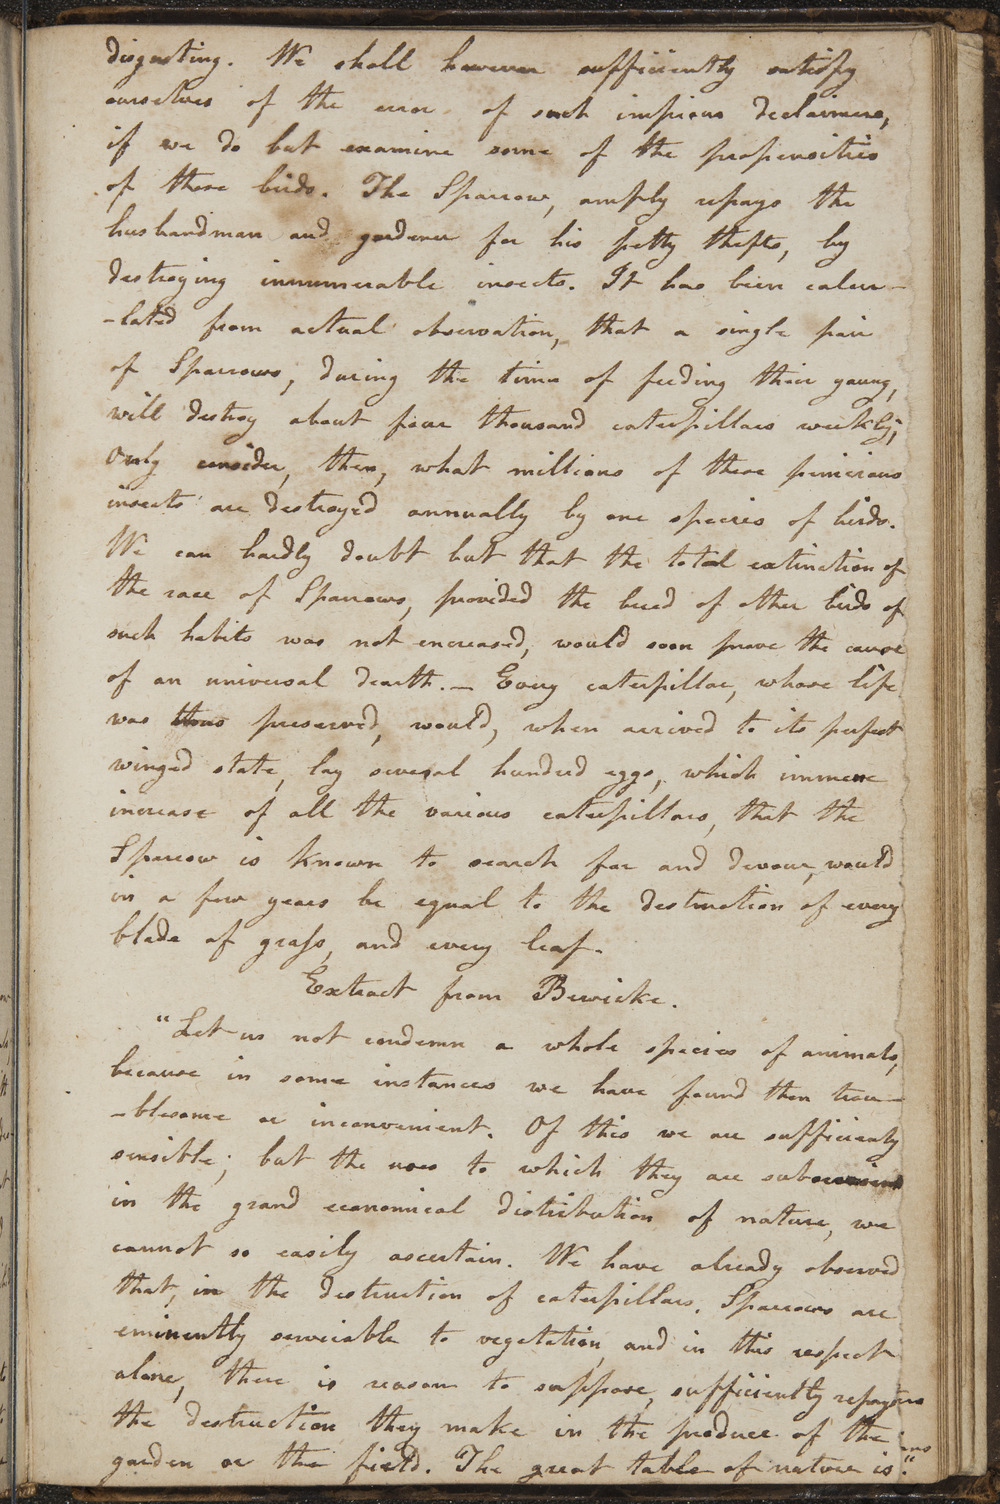 disgusting. We shall however sufficiently satisfy
ourselves of the error of such impious declaimers,
if we do but examine some of the propensities
of these birds. The Sparrow, amply repays the
husbandman and gardener for his petty thefts, by
destroying innumerable insects. It has been calcu-
-lated from actual observation, that a single pair
of Sparrows, during the time of feeding their young,
will destroy about four thousand caterpillars weekly;
only consider, then, what millions of these pernicious
insects are destroyed annually by one species of birds.
We can hardly doubt but that the total extinction of
the race of Sparrows, provided the breed of other birds of
such habits was not encreased, would soon prove the cause
of an universal dearth. — Every caterpillar, whose life
was thus preserved, would, when arrived to its perfect
winged state, lay several hundred eggs, which immense
increase of all the various caterpillars, that the
Sparrow is known to search for and devour, would
in a few years be equal to the destruction of every
blade of grass, and every leaf.
Extract from Bewicke.
"Let us not condemn a whole species of animals,
because in some instances we have found them trou-
-blesome or inconvenient. Of this we are sufficiently
sensible; but the uses to which they are subservient
in the grand economical distribution of nature, we
cannot so easily ascertain. We have already observed
that, in the destruction of caterpillars, Sparrows are
eminently serviceable to vegetation, and in this respect
alone, there is reason to suppose, sufficiently repay
the destruction they make in the produce of the
garden or the field. The great table of nature is."